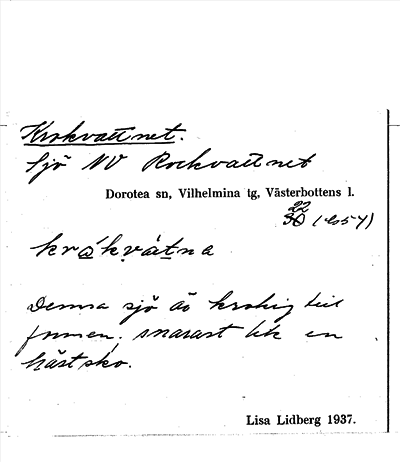 Krokvattnet.
Sjö NV Rockvattnet
Dorotea sn, Vilhelmina tg, Västerbottens l.
22
30
krákvátna
Denna sjö är krokig till
formen. snarast lik en
hästsko.
Lisa Lidberg 1937.